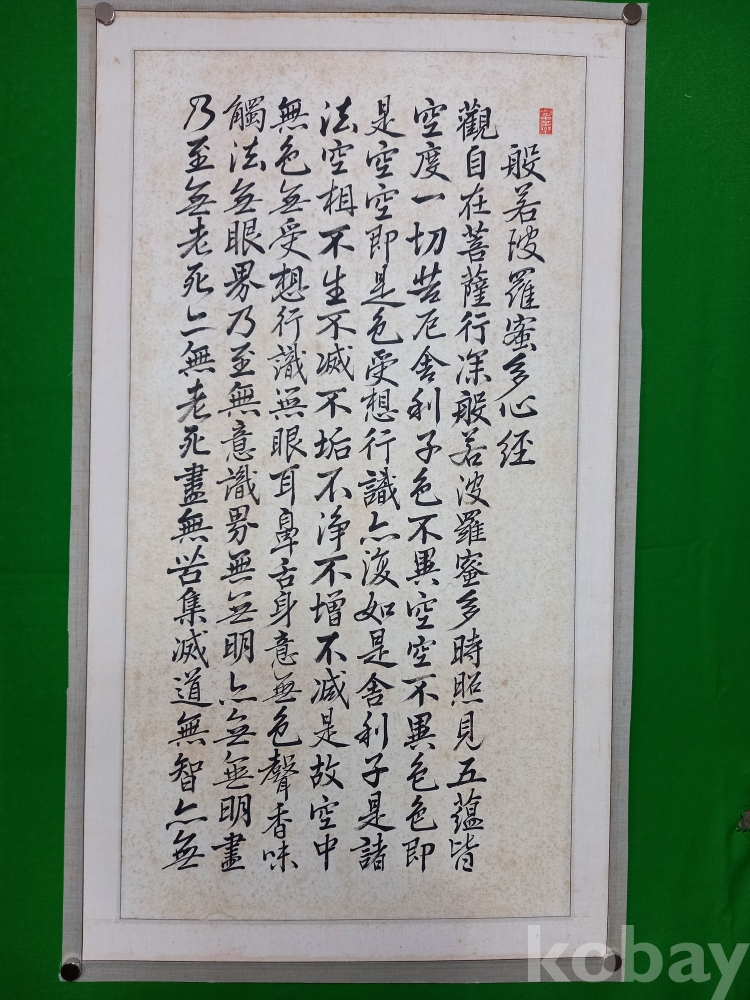 般若波羅蜜多心經
觀自在菩薩行深般若波羅蜜多時照見五蘊皆
空度一切苦厄舍利子色不異空空不異色色即
是空空即是色受想行識亦復如是舍利子是諸
法空相不生不滅不垢不淨不增不減是故空中
無色無受想行識無眼耳鼻舌身意無色聲香味
觸法無眼界乃至無意識界無無明亦無無明盡
乃至無老死亦無老死盡無苦集滅道無智亦無
kobay